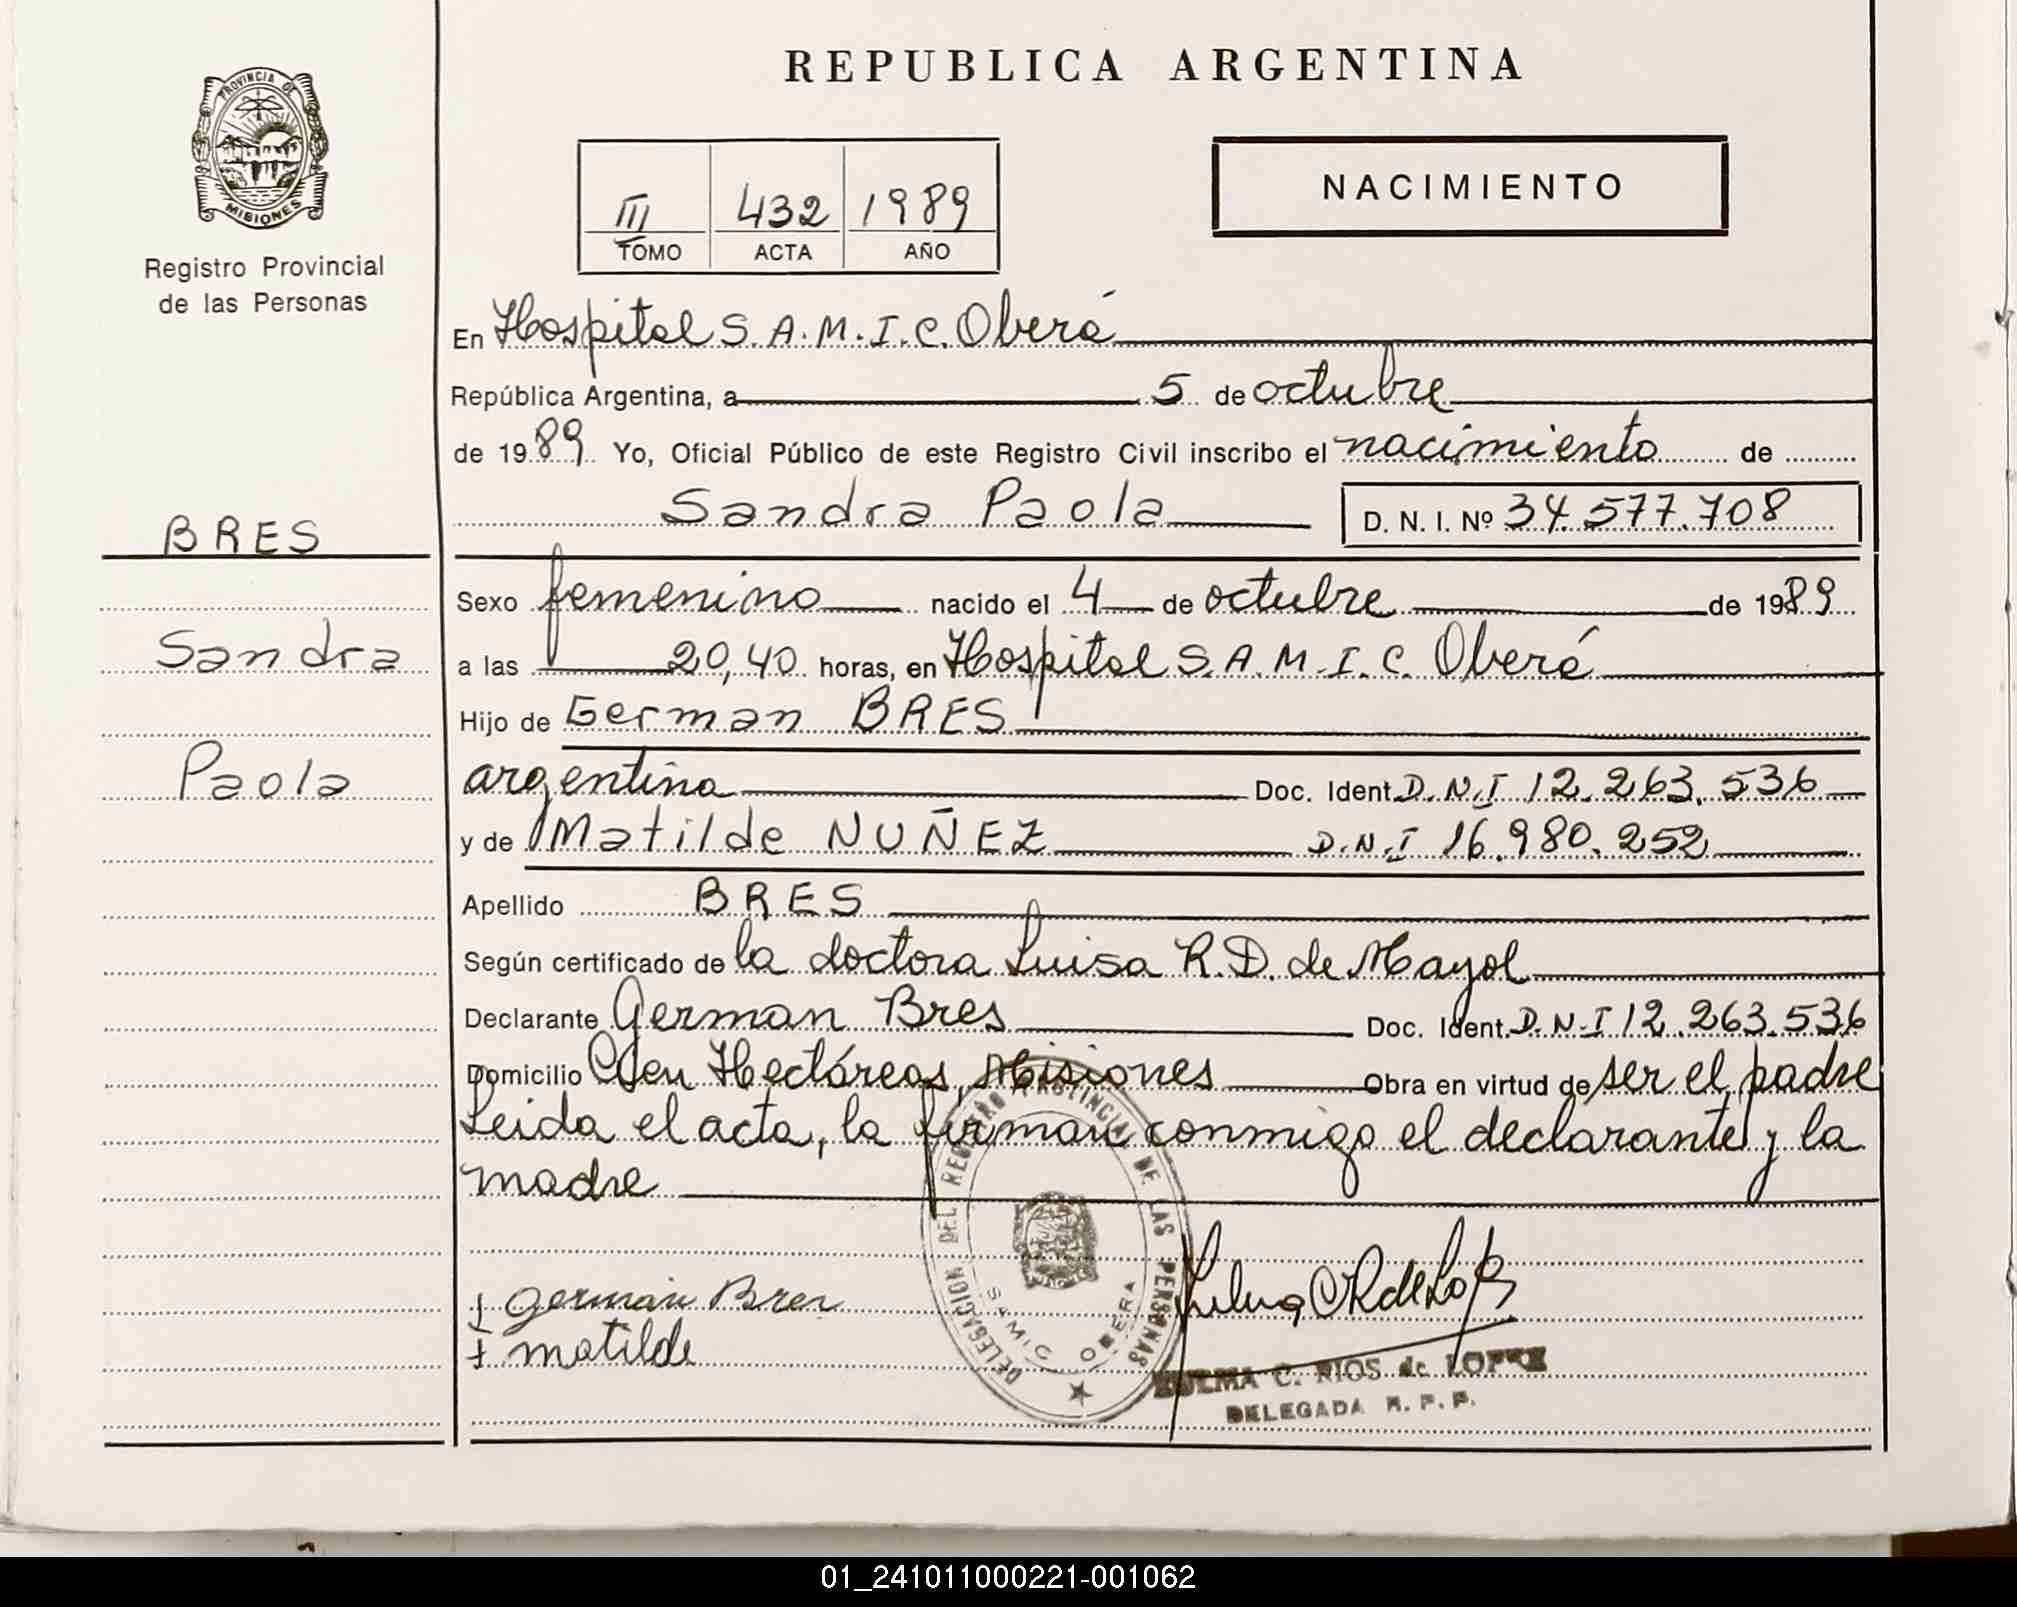 REPUBLICA ARGENTINA
PROVINCIA DE
MISIONES
Registro Provincial
de las Personas
III 432 1989
TOMO ACTA AÑO
NACIMIENTO
En Hospital S.A.M.I.C. Oberá
República Argentina, a 5 de octubre
de 1989 Yo, Oficial Público de este Registro Civil inscribo el nacimiento de
Sandra Paola D. N. I. Nº 34.577.708
BRES
Sandra
Paola
Sexo femenino nacido el 4 de octubre de 1989
a las 20,40 horas, en Hospital S.A.M.I.C. Oberá
Hijo de German BRES
argentina Doc. Ident. D.N.I 12.263.536
y de Matilde NUÑEZ D.N.I 16.980.252
Apellido BRES
Según certificado de la doctora Luisa R.D. de Mayol
Declarante German Bres Doc. Ident. D.N.I 12.263.536
Domicilio Cien Hectáreas, Misiones Obra en virtud de ser el padre
Leida el acta, la firman conmigo el declarante y la
madre
german Bres
matilde
DELEGACION DEL REGISTRO PROVINCIAL DE LAS PERSONAS
SAMIC OBERA
ZULMA C. RIOS de LOPEZ
DELEGADA R. P. P.
01_241011000221-001062